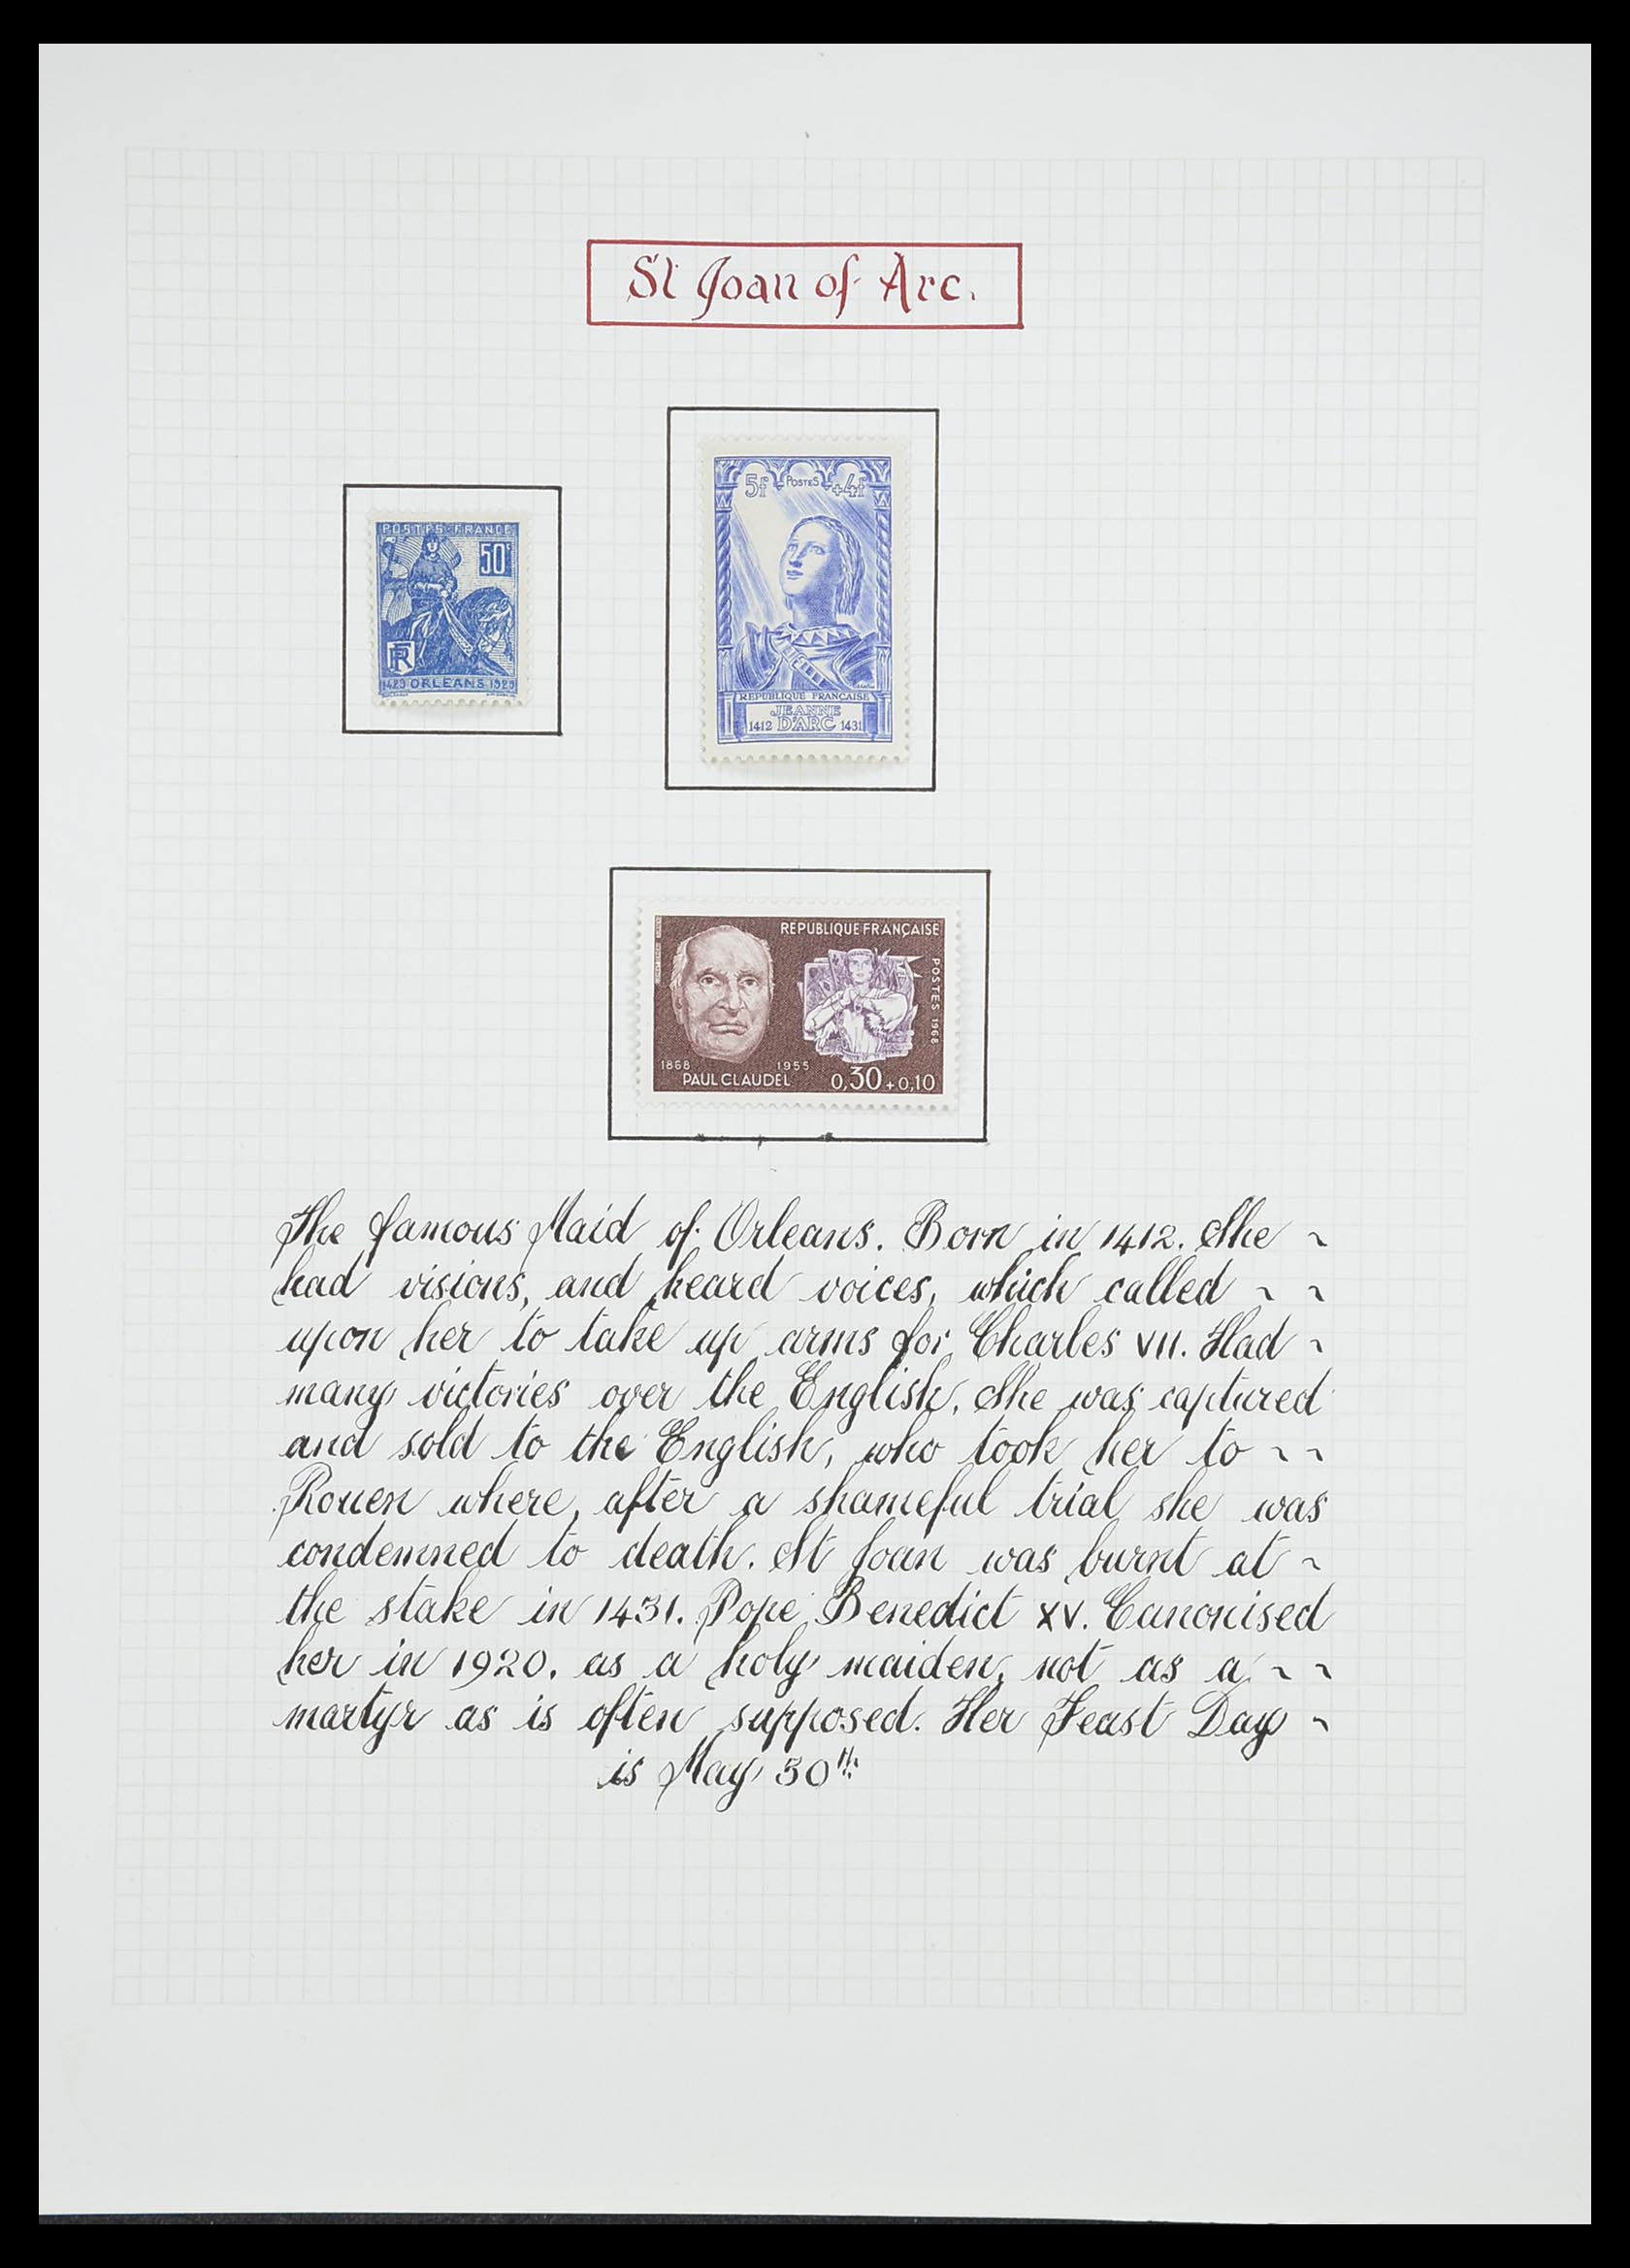 St Joan of Arc.
5f POSTES +4f
POSTES-FRANCE
50c
RF
1429 ORLEANS 1929
REPUBLIQUE FRANÇAISE
JEANNE
1412 D'ARC 1431
REPUBLIQUE FRANÇAISE
POSTES 1968
1868 1955
PAUL CLAUDEL 0,30+0,10
The famous Maid of Orleans. Born in 1412. She ~
had visions, and heard voices, which called ~ ~
upon her to take up arms for Charles VII. Had ~
many victories over the English. She was captured
and sold to the English, who took her to ~ ~
Rouen where, after a shameful trial she was
condemned to death. St Joan was burnt at ~
the stake in 1431. Pope Benedict XV. Canonised
her in 1920. as a holy maiden, not as a ~ ~
martyr as is often supposed. Her Feast Day ~
is May 30th.